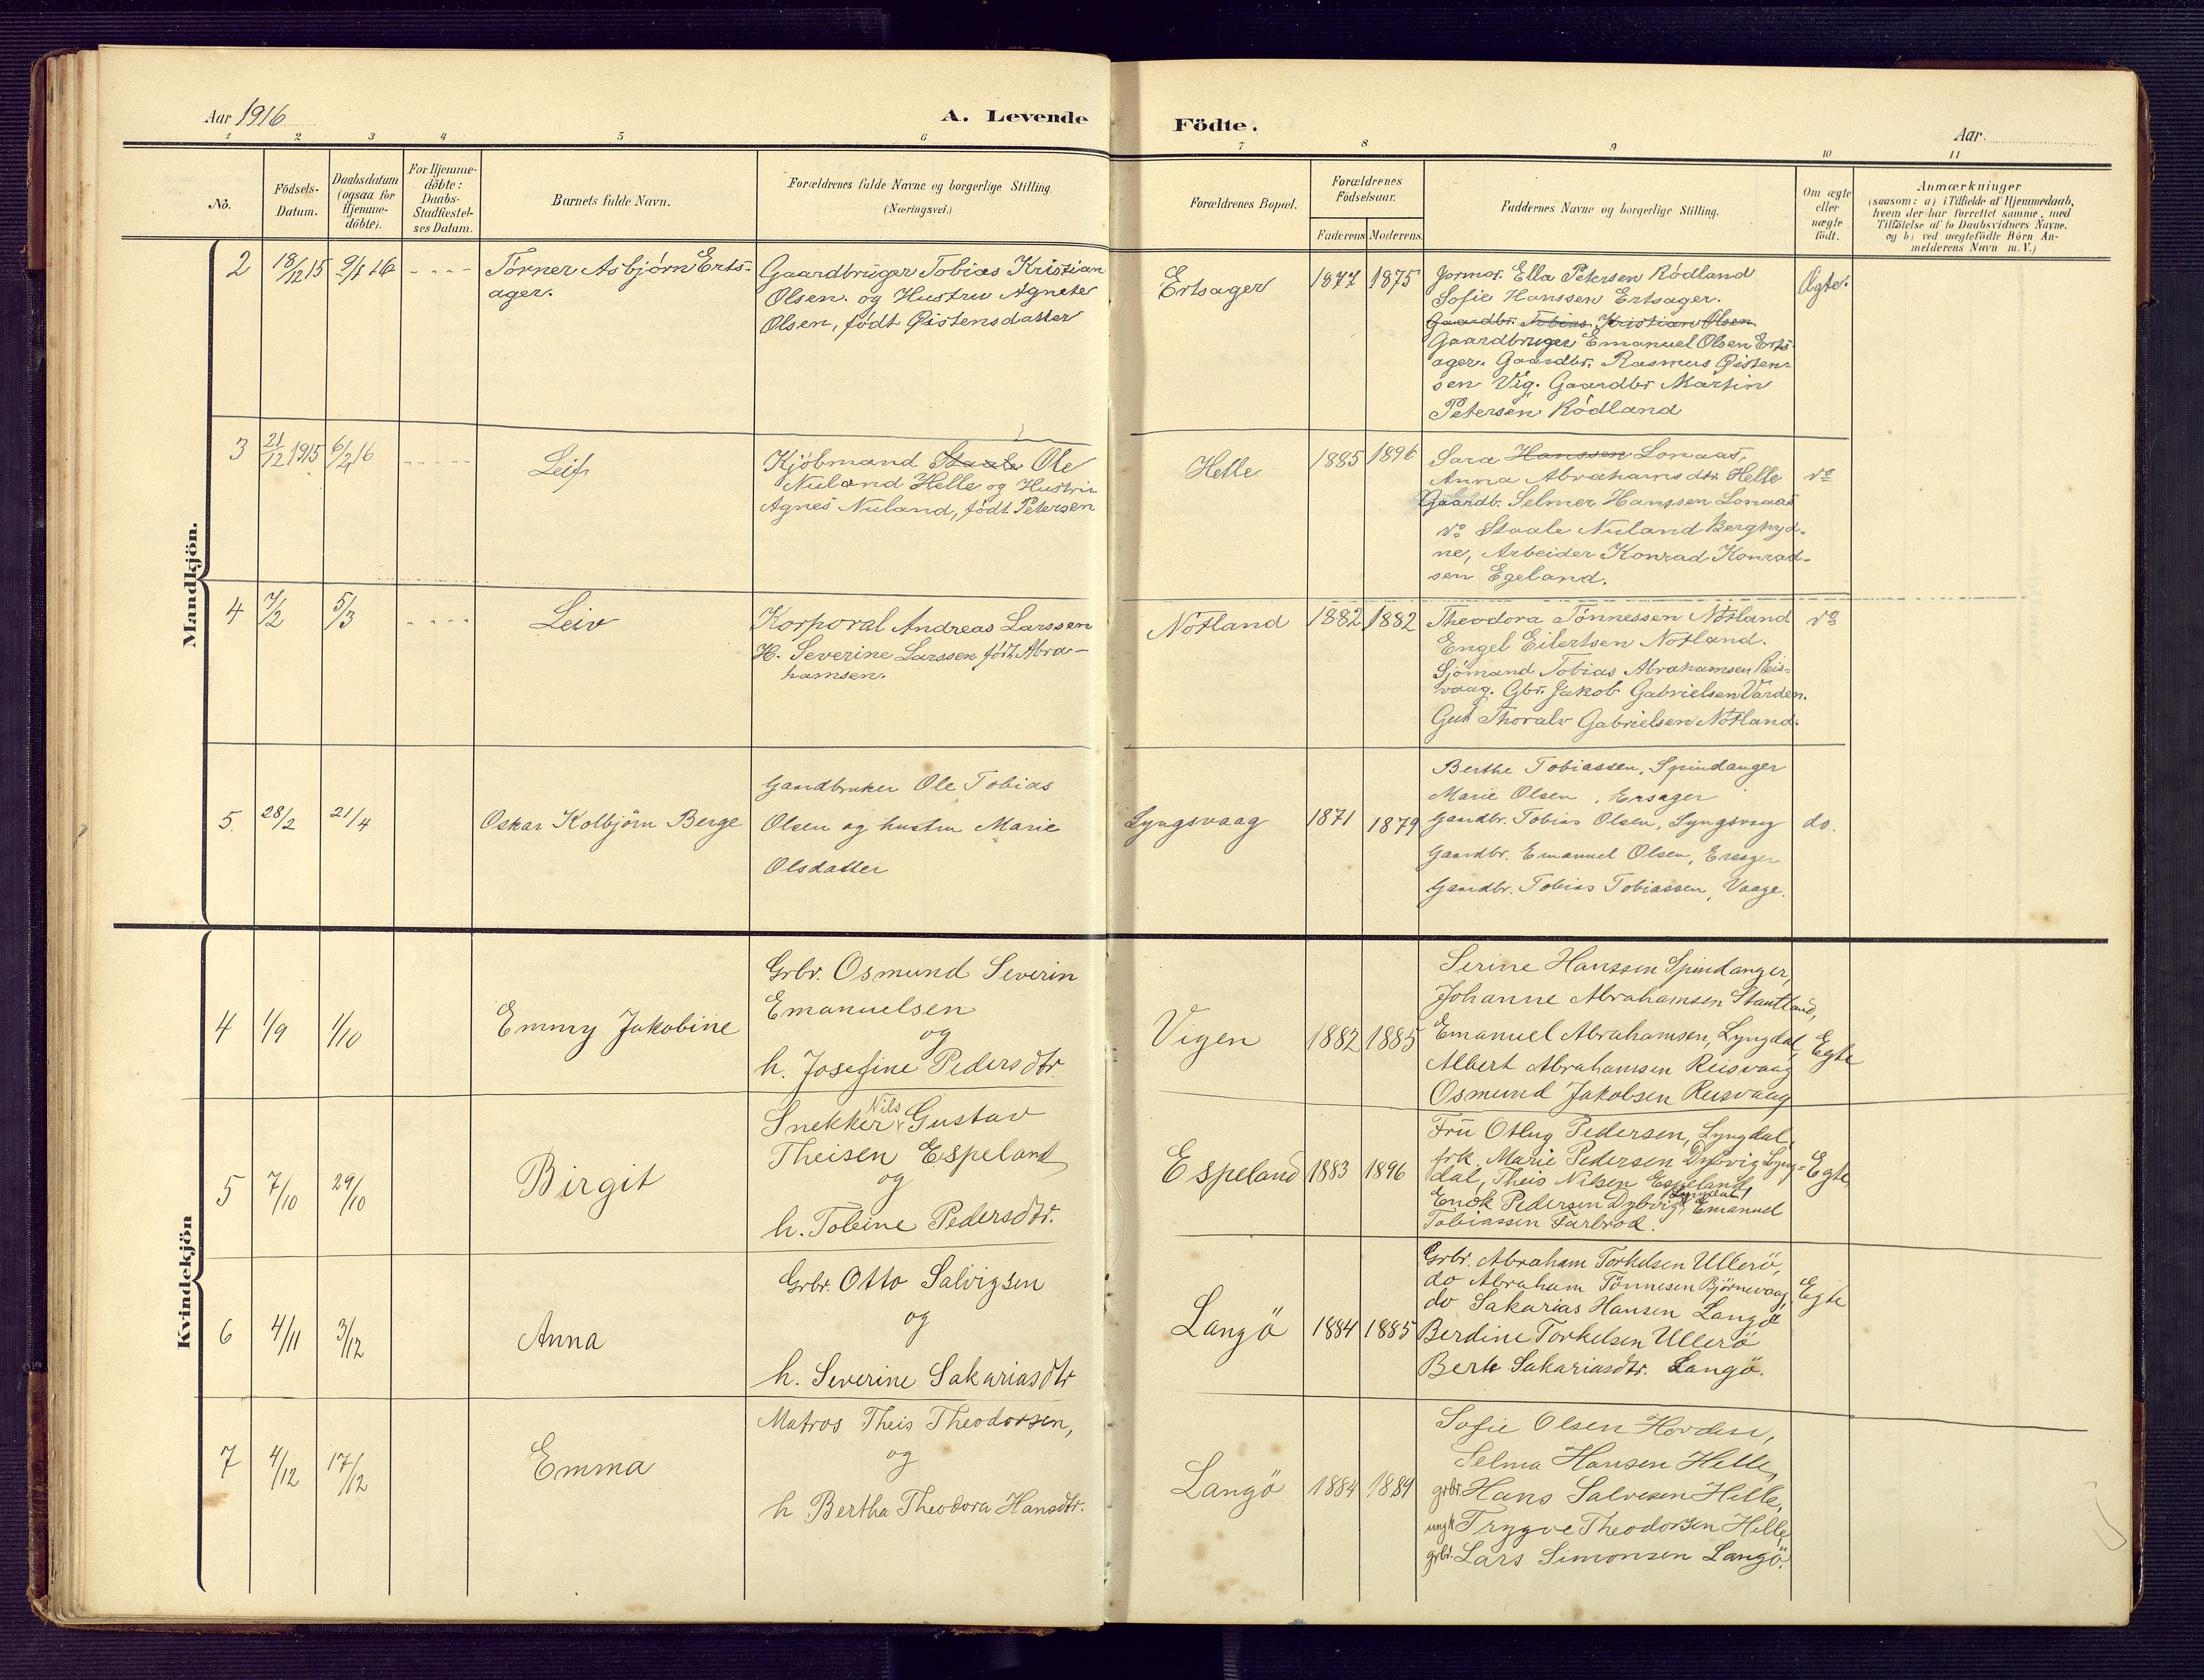 Aar 1916
A. Levende
Födte.
Aar
1 2 3 4 5 6 7 8 9 10 11
No.
Födsels-
Datum.
Daabsdatum
(ogsaa for
Hjemme-
döbte).
For Hjemme-
döbte:
Daabs-
Stadfæstel-
ses Datum.
Barnets fulde Navn.
Forældrenes fulde Navne og borgerlige Stilling.
(Næringsvei.)
Forældrenes Bopæl.
Forældrenes
Födselsaar.
Faderens
Moderens.
Faddernes Navne og borgerlige Stilling.
Om ægte
eller
uægte
födt.
Anmærkninger
(saasom: a) i Tilfælde af Hjemmedaab,
hvem der har forrettet samme, med
Tilföielse af to Daabsvidners Navne.
og b) ved uægtefödte Börn An-
melderens Navn m. V.)
Mandkjön.
2
18/12 15
9/1 16
- - - -
Törner Asbjörn Erts-
ager.
Gaardbruger Tobias Kristian
Olsen. og Hustru Agnete
Olsen, födt Qistensdatter
Ertsager
1877
1875
Jormor. Ella Petersen Rödland
Sofie Hanssen Ertsager.
Gaardbr. Tobias Kristian Olsen
Gaardbruger Emanuel Olsen Erts-
ager. Gaardbr. Rasmus Qisten-
sen Vig. Gaardbr Martin
Petersen Rödland
Ægte.
3
21/12 1915
6/2 16
- - - - -
Leif
Kjöbmand Staale Ole
Nuland Helle og Hustru
Agnes Nuland, födt Petersen
Helle
1885
1896
Sara Hanssen Lonaas,
Anna Abrahamsdtr Helle
Gaardb. Selmer Hanssen Lonaas
do Staale Nuland Berghyd-
ne, Arbeider Konrad Konrad-
sen Egeland.
do
4
7/2
5/3
- - - -
Leiv
Korporal Andreas Larssen
H. Severine Larssen födt Abra-
hamsen.
Notland
1882
1882
Theodora Tönnessen Notland
Engel Eilertsen Notland.
Sjömand Tobias Abrahamsen Reis-
vaag. Gbr. Jakob Gabrielsen Varden.
Gut Thoralv Gabrielsen Notland.
do
5.
28/2
21/4
Oskar Kolbjörn Berge
Gaardbruker Ole Tobias
Olsen og hustru Marie
Olsdatter
Lyngsvaag
1871
1879
Berthe Tobiassen, Spindanger
Marie Olsen, Ersager
Gaardbr. Tobias Olsen, Lyngsvag
Gaardbr. Emanuel Olsen, Ersager
Gaardbr. Tobias Tobiassen, Vaage.
do.
Kvindekjön
4
1/9
1/10
Emmy Jakobine
Grbr. Osmund Severin
Emanuelsen
og
h. Josefine Pedersdtr.
Vigen
1882
1885
Serine Hanssen Spindanger,
Johanne Abrahamsen Stautland,
Emanuel Abrahamsen, Lyngdal,
Albert Abrahamsen Reisvaag
Osmund Jakobsen Reisvaag
Egte
5
7/10
29/10
Birgit
Snekker Nils Gustav
Theisen Espeland
og
h. Tobine Pedersdtr.
Espeland
1883
1896
Fru Otlug Pedersen, Lyngdal,
frk Marie Pedersen Dybvig Lyng-
dal, Theis Nilsen Espeland,
Enok Pedersen Dybvig, Lyngdal, Emanuel
Tobiassen Farbrod.
Egte
6
4/11
3/12
Anna
Grbr. Otto Salvigsen
og
h. Severine Sakariasdtr
Langö
1884
1885
Grbr. Abraham Torkelsen Ullerö,
do Abraham Tönnesen Björnevaag,
do Sakarias Hansen Langö
Berdine Torkelsen Ullerö
Berte Sakariasdtr. Langö.
Egte
7
4/12
17/12
Emma
Matros Theis Theodorsen,
og
h Bertha Theodora Hansdtr.
Langö
1884
1889
Sofie Olsen Hovden,
Selma Hansen Helle,
grbr. Hans Salvesen Helle,
ungk Trygve Theodorsen Helle,
grbr. Lars Simonsen Langö.